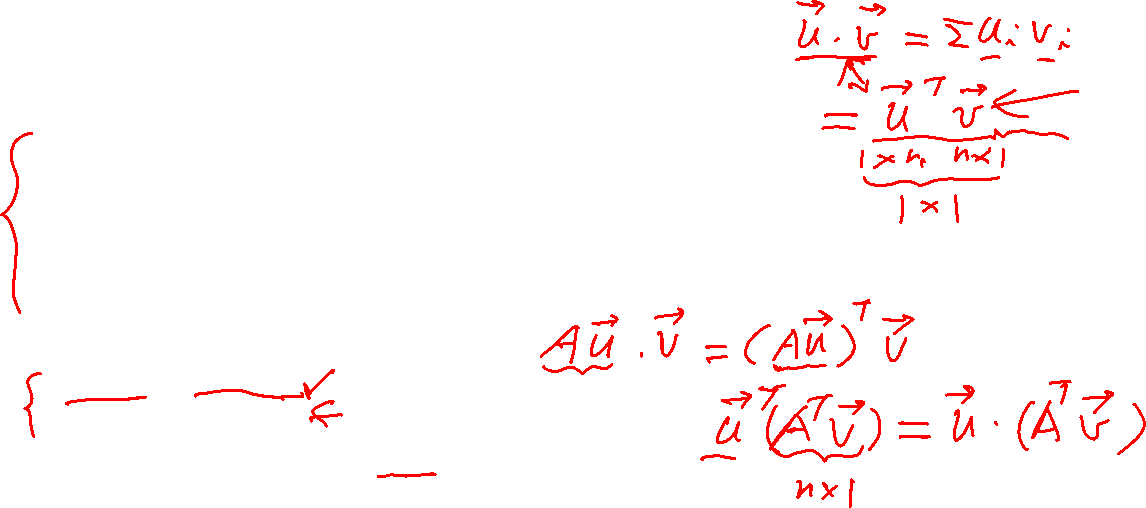 u⃗ · v⃗ = Σ uᵢ vᵢ
= u⃗ᵀ v⃗
1×n n×1
1×1
Au⃗ · v⃗ = (Au⃗)ᵀ v⃗
u⃗ᵀ(Aᵀv⃗) = u⃗ · (Aᵀv⃗)
n×1